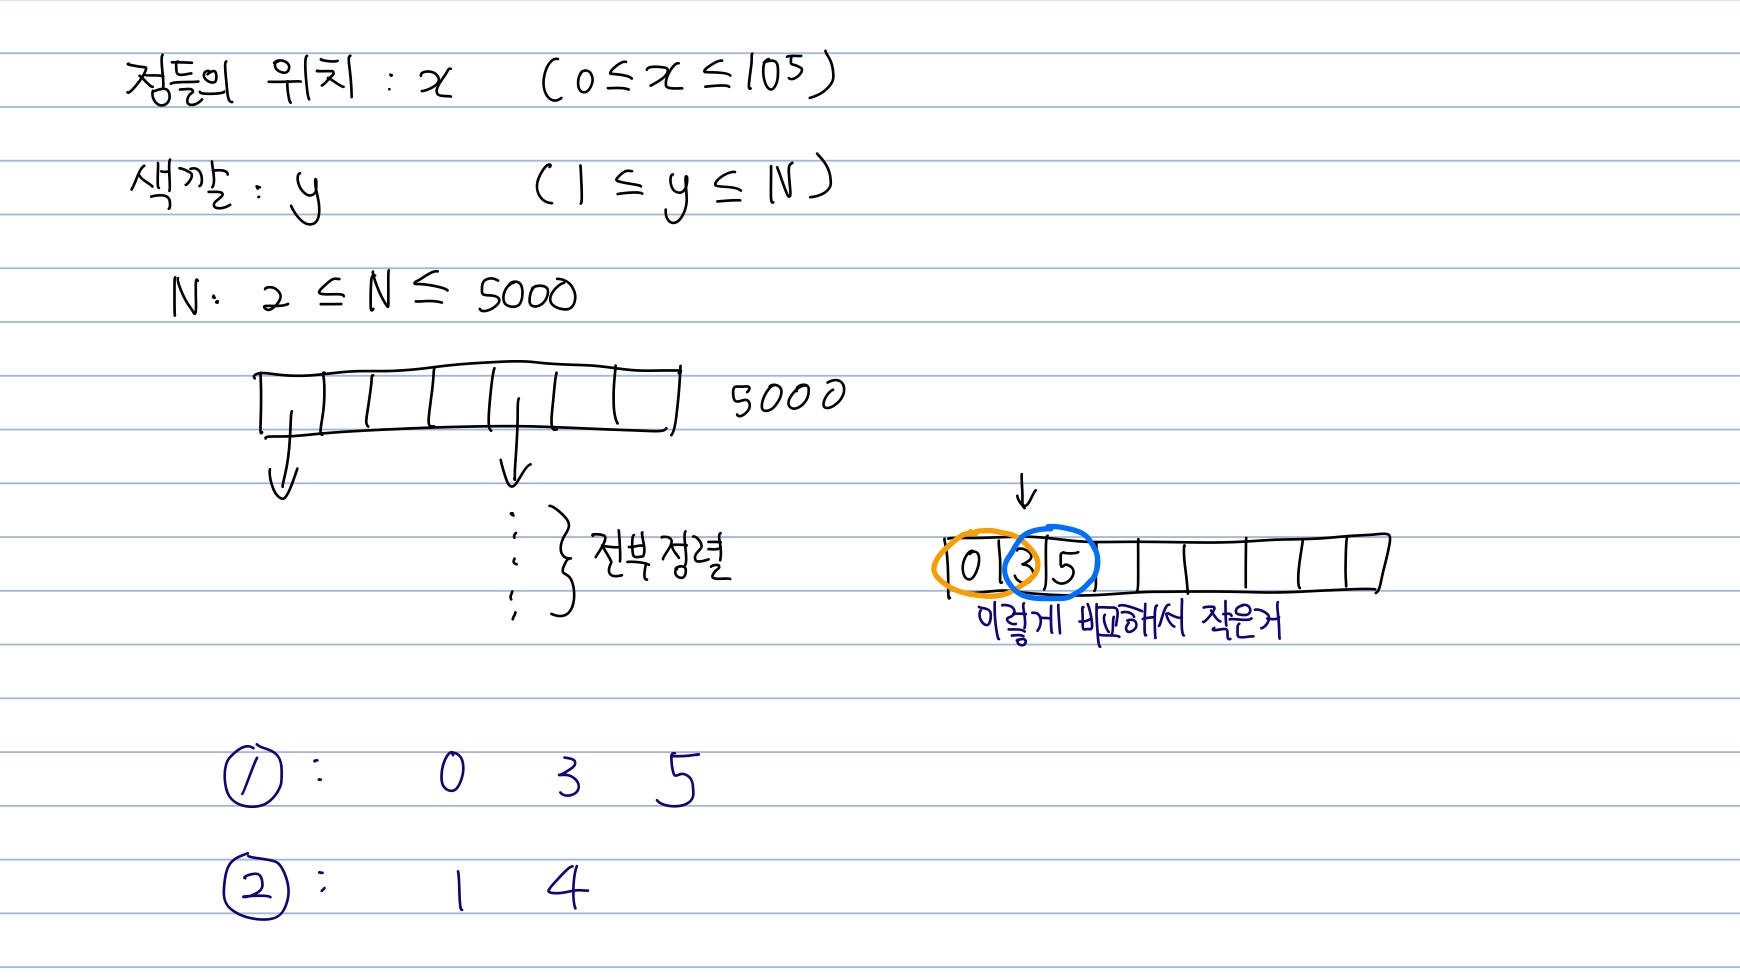 점들의 위치 : x (0 ≤ x ≤ 10⁵)
색깔 : y (1 ≤ y ≤ N)
N: 2 ≤ N ≤ 5000
5000
전부 정렬
0 3 5
이렇게 비교해서 작은거
① : 0 3 5
② : 1 4